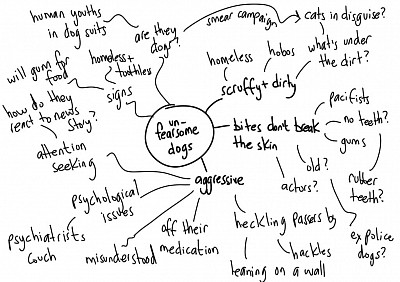 human youths
in dog suits
are they
dogs?
smear campaign
cats in disguise?
what's under
the dirt?
homeless
hobos
scruffy + dirty
will gum for
food
homeless +
toothless
signs
how do they
react to news
story?
attention
seeking
un-
fearsome
dogs
bites don't break
the skin
pacifists
no teeth?
gums
rubber
teeth?
old?
actors?
ex police
dogs?
aggressive
psychological
issues
psychiatrists
couch
misunderstood
off their
medication
heckling passers by
hackles
leaning on a wall